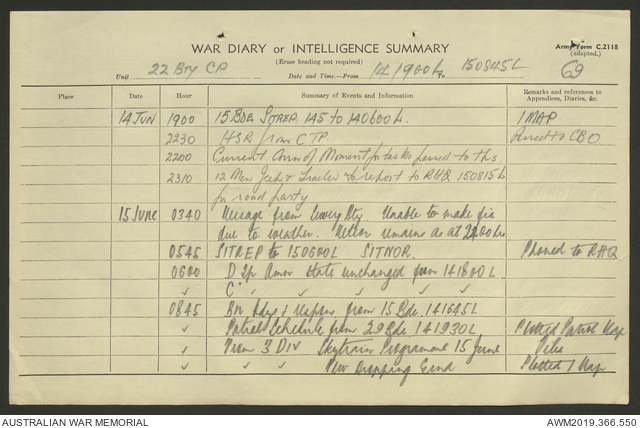 WAR DIARY or INTELLIGENCE SUMMARY
Army Form C.2118
(adapted.)
(Erase heading not required)
Unit 22 Bty CP Date and Time.—From 14 1900L To 150845L 69
Place Date Hour Summary of Events and Information Remarks and references to Appendices, Diaries, &c.
14 JUN 1900 15 BDE SITREP 145 to 140600L. 1 MAP
2230 from CTP. to CBO
2200 Current of Moment for tasks passed to this
2310 12 Men Jeep & Trailer to report to RHQ 150815L
for road party
15 June 0340 Message from Bty. Unable to make
due to weather. remains as at 2200 hrs
0545 SITREP to 150600L SITNOR. Phoned to RHQ
0600 D Sp Amn State unchanged from 141800L.
✓ C " ✓ ✓ ✓ ✓ ✓
0845 Bn & from 15 Bde 141645L
✓ Patrol Schedule from 29 Bde 141930L Plotted Patrol Map
✓ From 3 DIV Skytrain Programme 15 June Files
✓ ✓ ✓ New Dropping Plotted 1 Map
AUSTRALIAN WAR MEMORIAL AWM2019.366.550